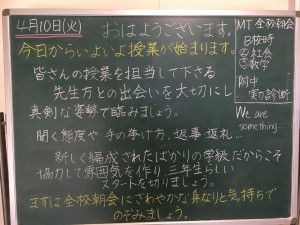 4月10日(火)
おはようございます。
今日からいよいよ授業が始まります。
皆さんの授業を担当して下さる
先生方との出会いを大切にし
真剣な姿勢で臨みましょう。
聞く態度や 手の挙げ方、返事、返礼…
新しく編成されたばかりの学級だからこそ
協力して雰囲気を作り、三年生らしい
スタートを切りましょう。
まずは全校朝会にさわやかな身なりと気持ちで
のぞみましょう。
MT 全校朝会
B校時
②社会
③数学
実力診断
We are
something…